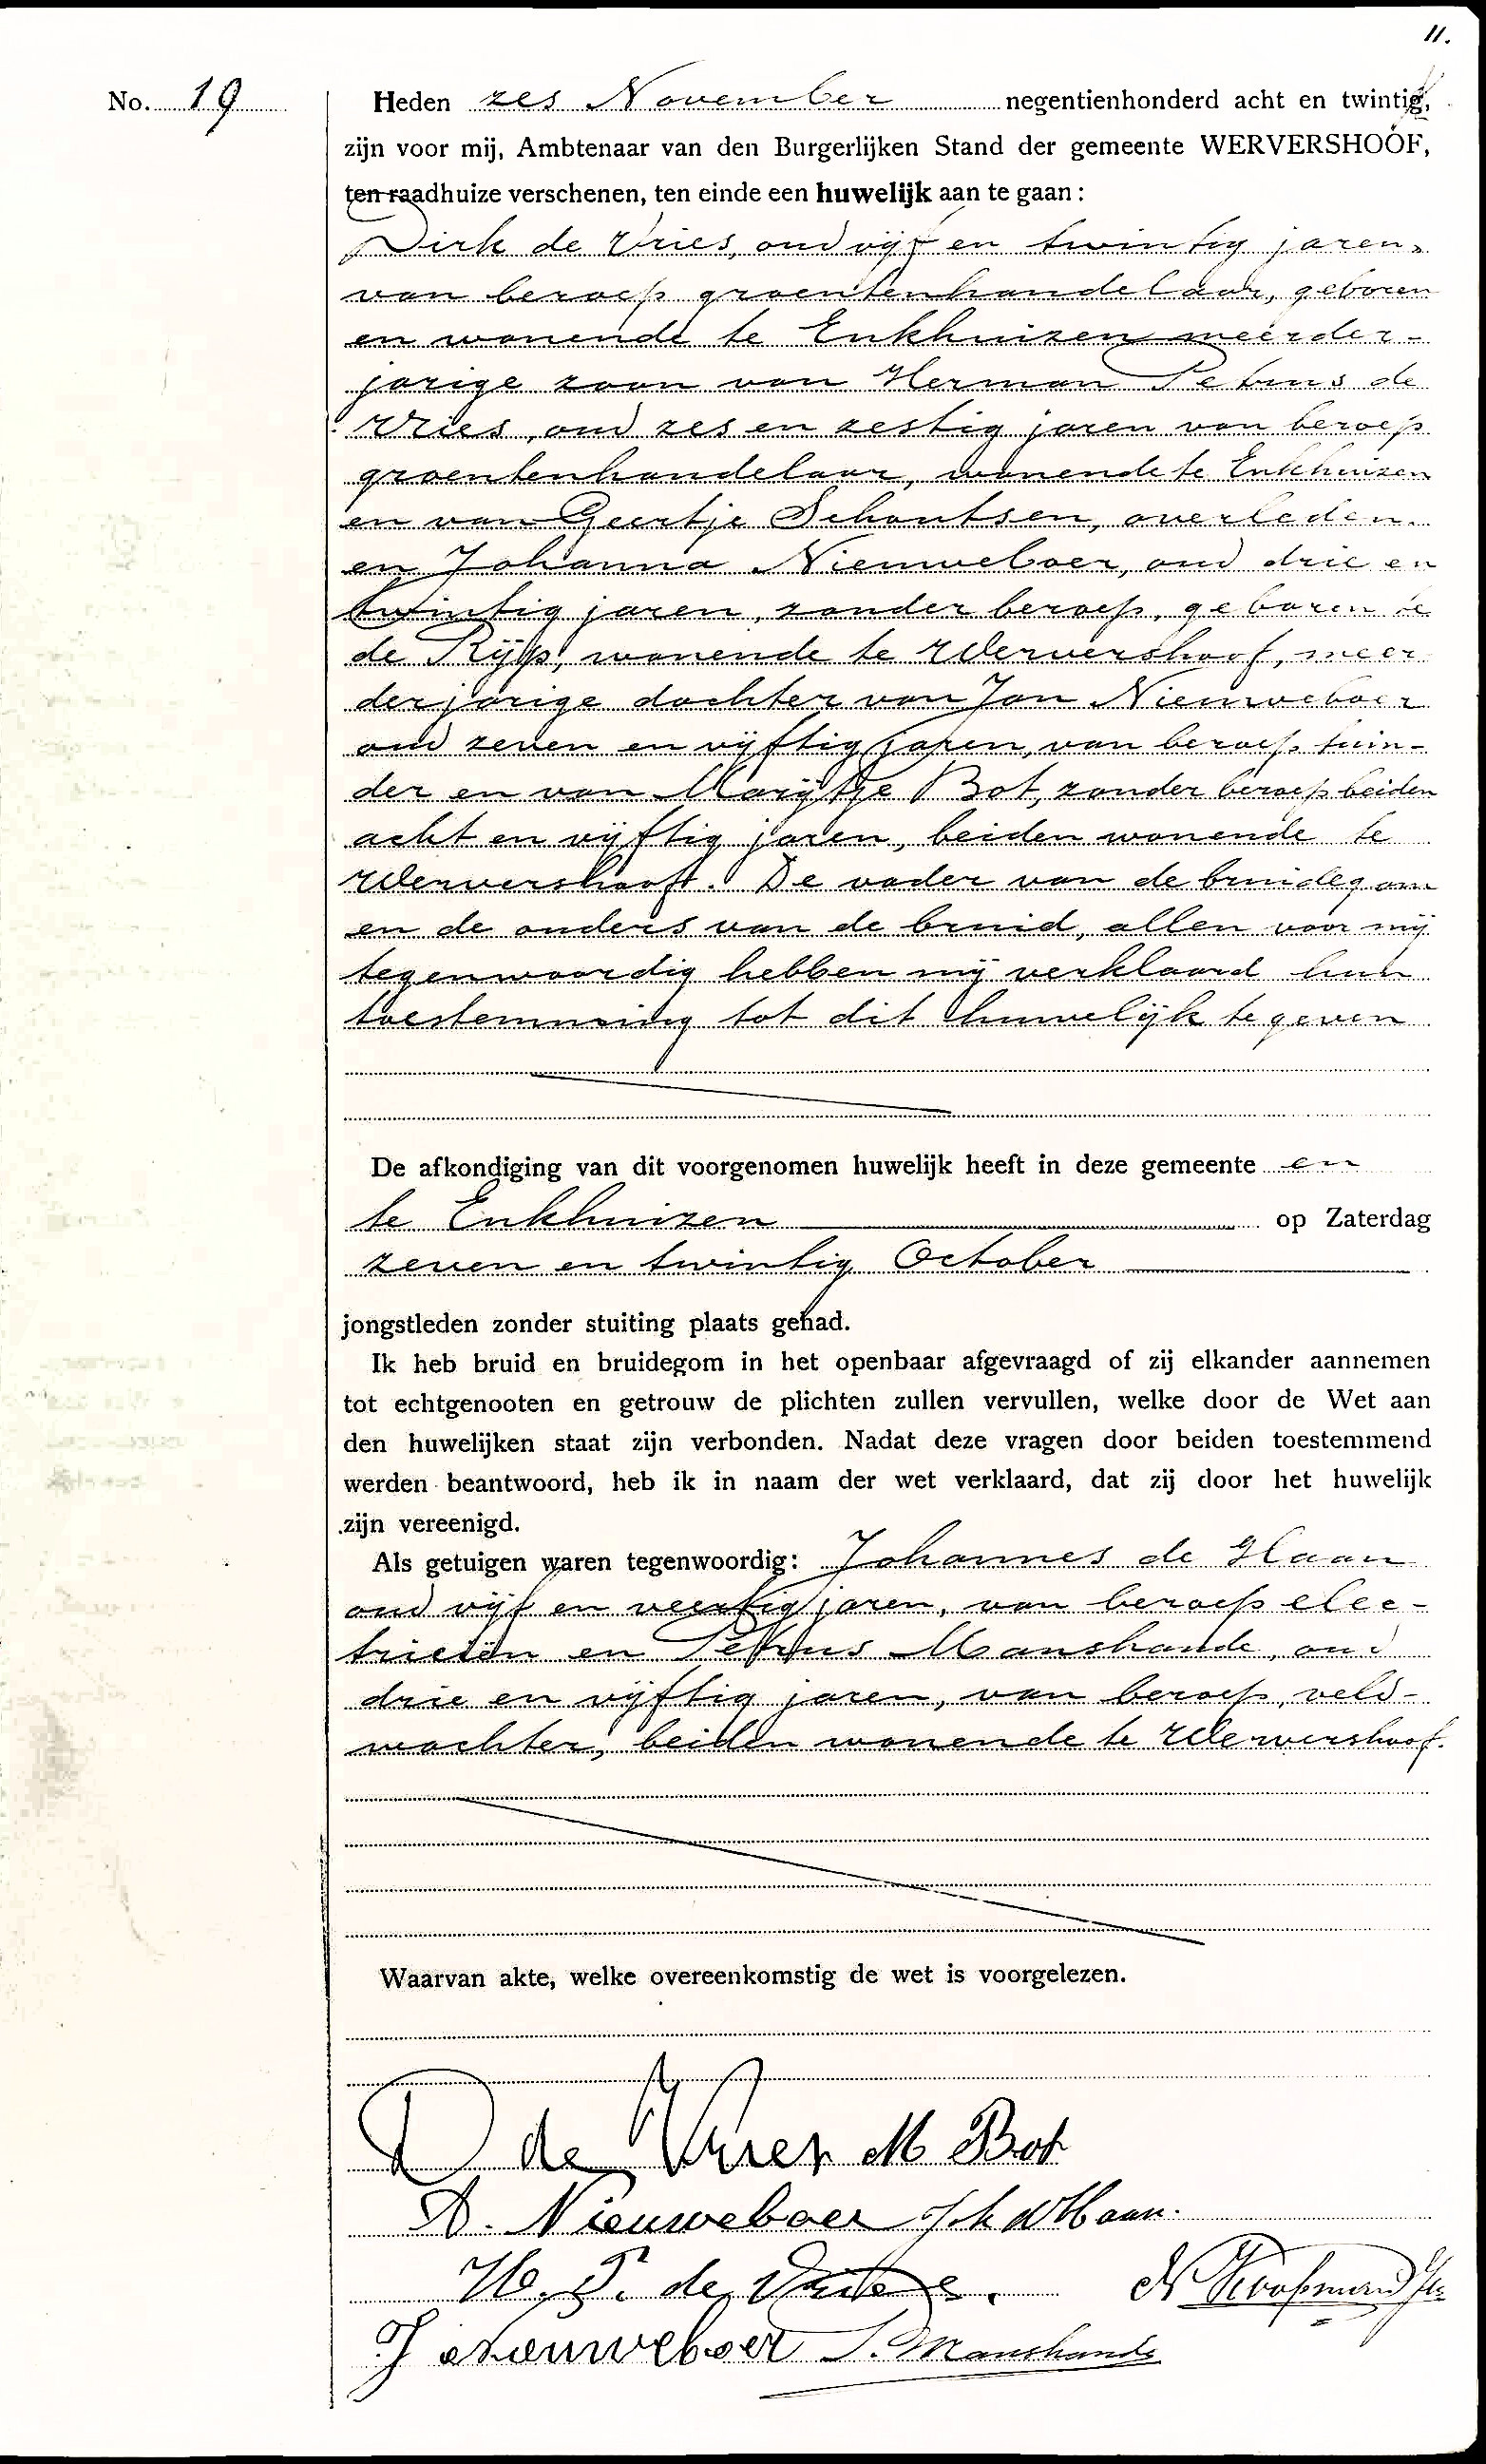 11.
No. 19
Heden zes November negentienhonderd acht en twintig,
zijn voor mij, Ambtenaar van den Burgerlijken Stand der gemeente WERVERSHOOF,
ten raadhuize verschenen, ten einde een huwelijk aan te gaan:
Dirk de Vries, oud vijf en twintig jaren,
van beroep groentenhandelaar, geboren
en wonende te Enkhuizen meerder-
jarige zoon van Herman Petrus de
Vries, oud zes en zestig jaren van beroep
groentenhandelaar, wonende te Enkhuizen
en van Geertje Schoutsen, overleden.
en Johanna Nieuweboer, oud drie en
twintig jaren, zonder beroep, geboren te
de Rijp, wonende te Wervershoof, meer
derjarige dochter van Jan Nieuweboer
oud zeven en vijftig jaren, van beroep tuin-
der en van Marijtje Bot, zonder beroep beiden
acht en vijftig jaren, beiden wonende te
Wervershoof. De vader van de bruidegom
en de ouders van de bruid, allen voor mij
tegenwoordig hebben mij verklaard hun
toestemming tot dit huwelijk te geven
De afkondiging van dit voorgenomen huwelijk heeft in deze gemeente en
te Enkhuizen op Zaterdag
zeven en twintig October
jongstleden zonder stuiting plaats gehad.
Ik heb bruid en bruidegom in het openbaar afgevraagd of zij elkander aannemen
tot echtgenooten en getrouw de plichten zullen vervullen, welke door de Wet aan
den huwelijken staat zijn verbonden. Nadat deze vragen door beiden toestemmend
werden beantwoord, heb ik in naam der wet verklaard, dat zij door het huwelijk
zijn vereenigd.
Als getuigen waren tegenwoordig: Johannes de Haan
oud vijf en veertig jaren, van beroep elec-
triciën en Petrus Manshande, oud
drie en vijftig jaren, van beroep, veld-
wachter, beiden wonende te Wervershoof.
Waarvan akte, welke overeenkomstig de wet is voorgelezen.
D de Vries M Bot
A. Nieuweboer Joh d Haan.
H. P. de Vries. N Koopman Jz
J Nieuweboer P. Manshande